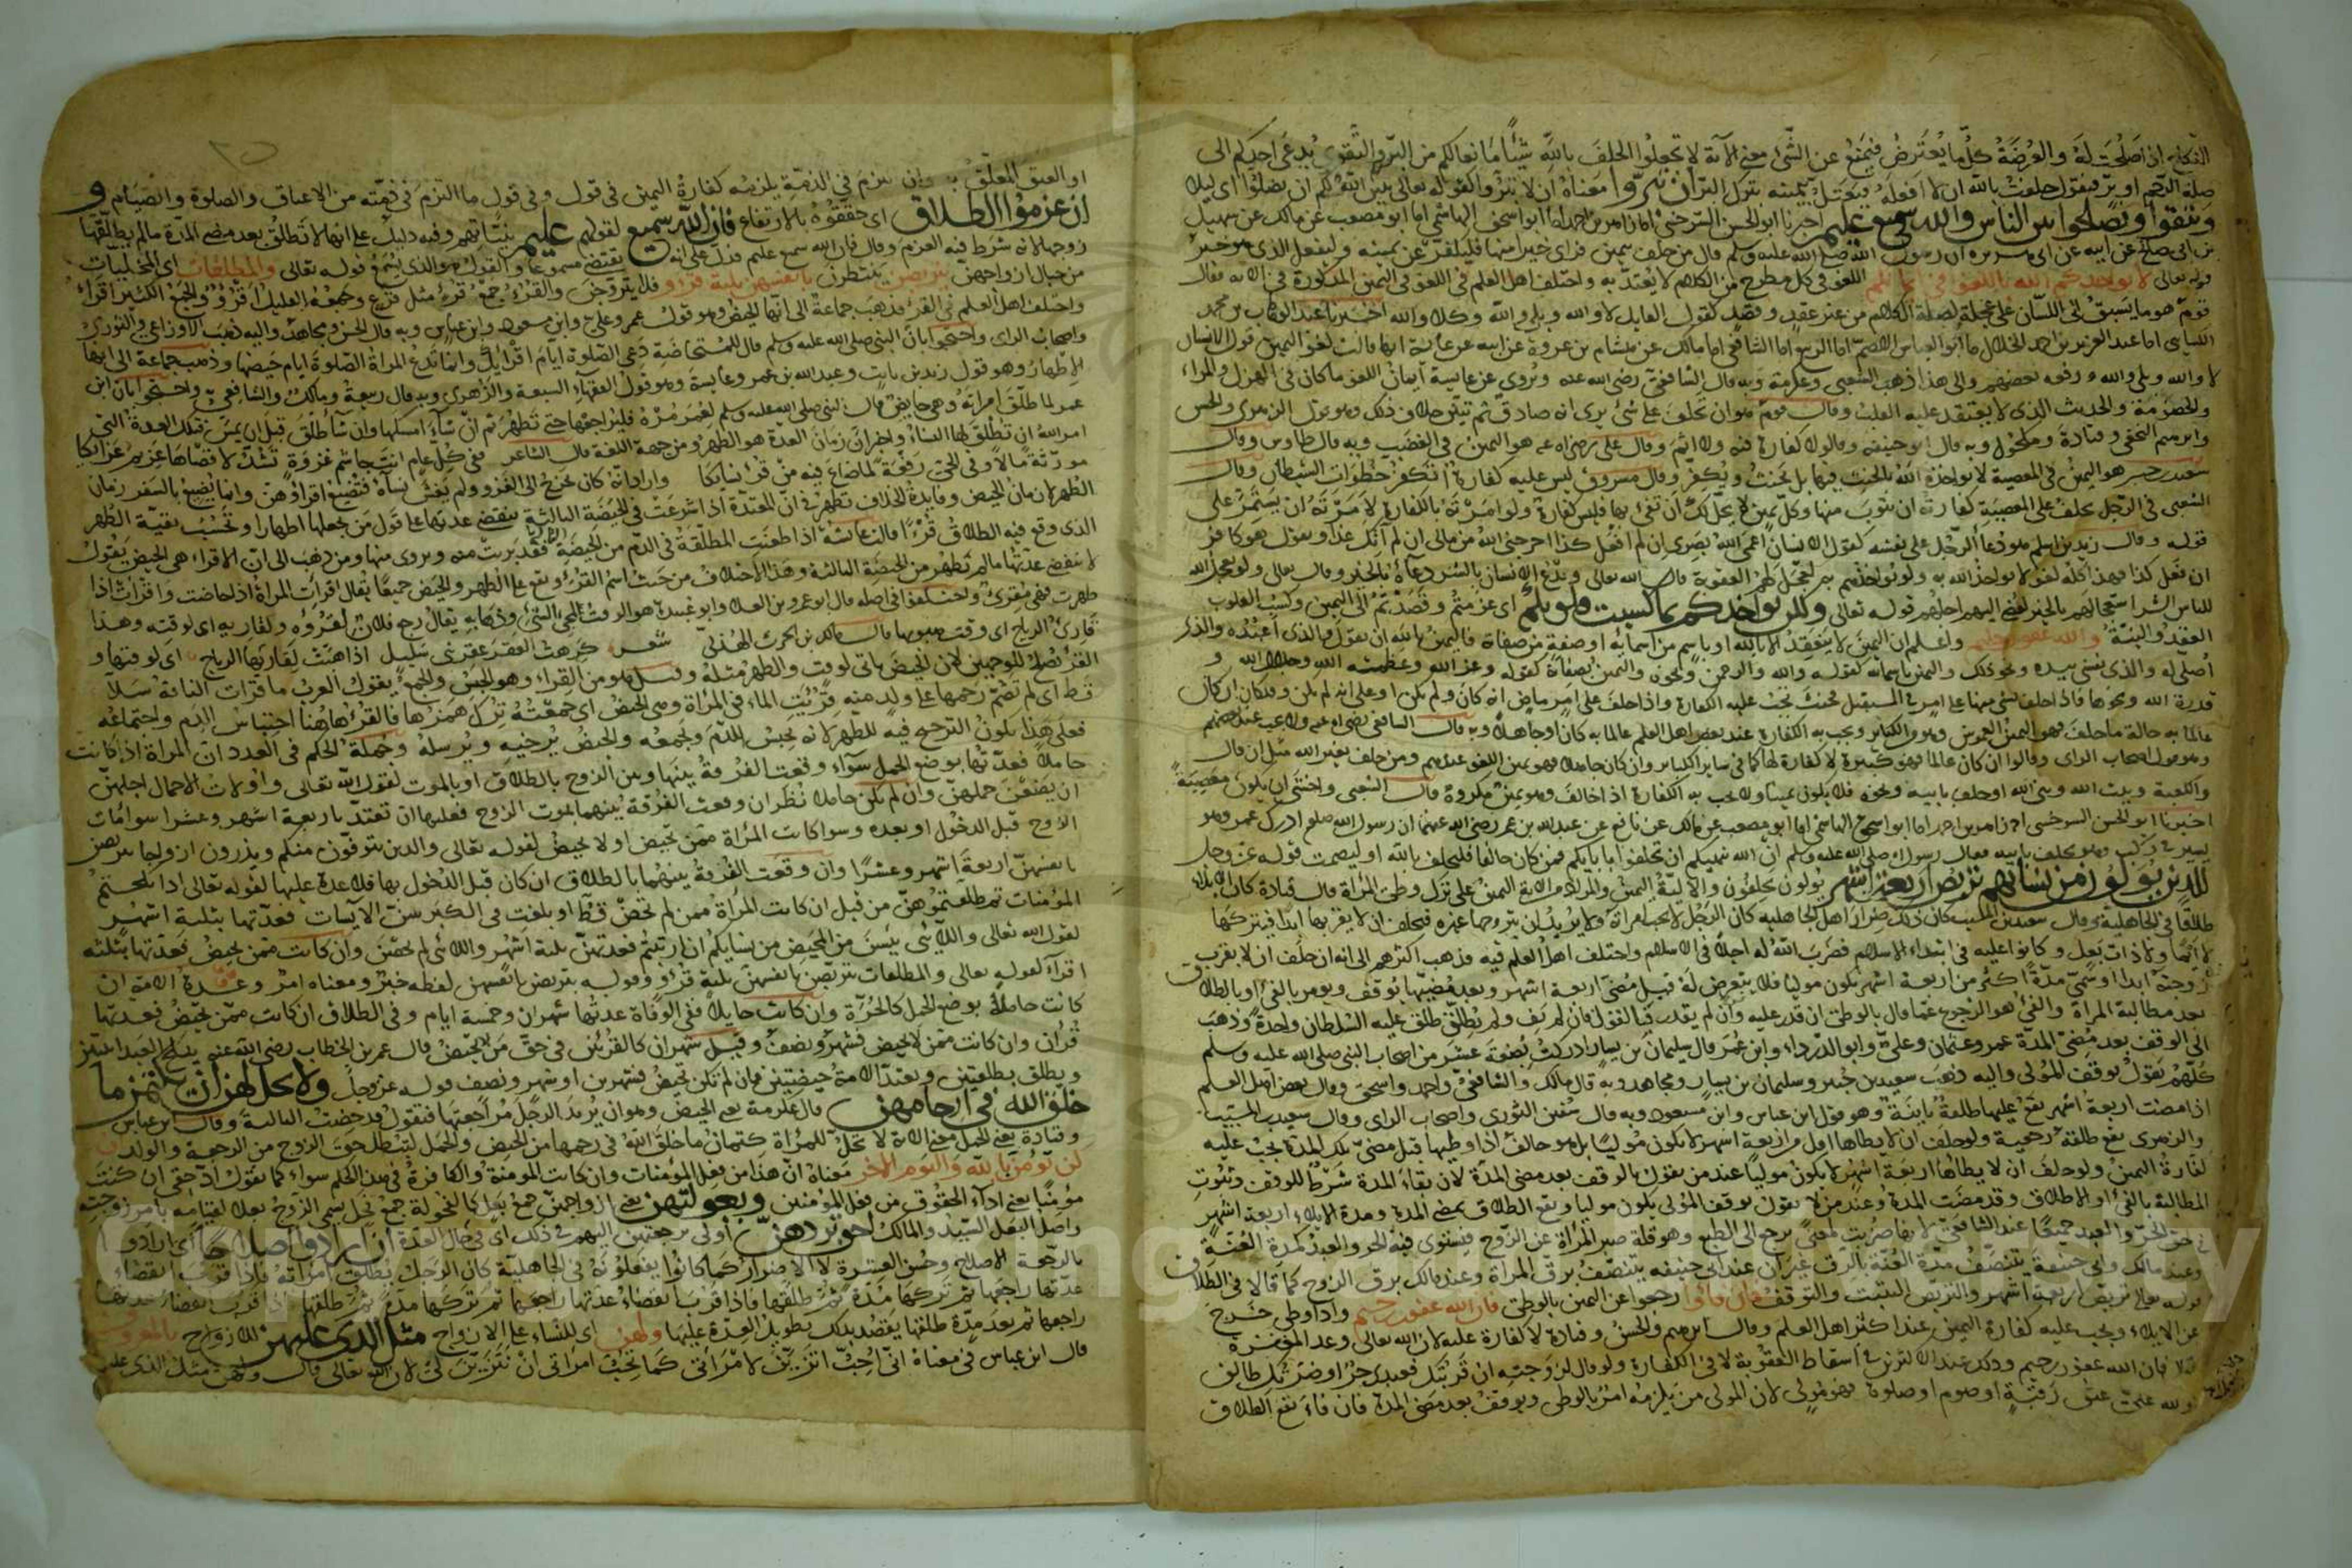 النكاح اذا صلحت له والعرضة كل ما يعترض فيمنع عن الشئ معنى الآية لا تجعلوا الحلف بالله شيئا مانعا لكم من البر والتقوى يدعى احدكم الى
صلة الرحم او بر فيقول حلفت بالله ان لا افعله فيعتل بيمينه بترك البر ان تبروا معناه ان لا تبروا كقوله تعالى يبين الله لكم ان تضلوا اى ليلا
وتتقوا وتصلحوا بين الناس والله سميع عليم اخبرنا ابو الحسن السرخسى انا زاهر بن احمد انا ابو اسحق الهاشمى انا ابو مصعب عن مالك عن سهيل
بن ابى صالح عن ابيه عن ابى هريرة ان رسول الله صلى الله عليه وسلم قال من حلف بيمين فراى خيرا منها فليكفر عن يمينه وليفعل الذى هو خير
قوله تعالى لا يواخذكم الله باللغو فى ايمانكم اللغو فى كل مطرح من الكلام لا يعتد به واختلف اهل العلم فى اللغو فى اليمين المذكورة فى الآية فقال
قوم هو ما يسبق الى اللسان على عجلة لصلة الكلام من غير عقد وقصد كقول القايل لا والله وبلى والله وكلا والله اخبرنا عبد الوهاب بن محمد
الكسائى انا عبد العزيز بن احمد الخلال نا ابو العباس الاصم انا الربيع انا الشافعى انا مالك عن هشام بن عروة عن ابيه عن عائشة انها قالت لغو اليمين قول الانسان
لا والله وبلى والله ورفعه بعضهم والى هذا ذهب الشعبى وعكرمة وبه قال الشافعى رضى الله عنه ويروى عن عائشة ايمان اللغو ما كان فى الهزل والمراء
والخصومة والحديث الذى لا يعتقد عليه القلب وقال قوم هو ان تحلف على شئ يرى انه صادق ثم تبين خلاف ذلك وهو قول الزهرى والحسن
وابرهيم النخعى وقتادة ومكحول وبه قال ابو حنيفة وقالوا لا كفارة فيه ولا اثم وقال على رضى الله عنه هو اليمين فى الغضب وبه قال طاوس وقال
سعيد بن جبير هو اليمين فى المعصية لا يواخذه الله بالحنث فيها بل يحنث ويكفر وقال مسروق ليس عليه كفارة أنكفر خطوات الشيطان وقال
الشعبى فى الرجل يحلف على المعصية كفارته ان يتوب منها وكل يمين لا يحل لك ان تفى بها فليس كفارة ولو امرته بالكفارة لامرته ان يستمر على
قوله وقال زيد بن اسلم هو دعا الرجل على نفسه كقول الانسان اعمى الله بصرى ان لم افعل كذا اخرجنى الله من مالى ان لم آتك غدا ويقول هو كافر
ان فعل كذا فهذا كله لغو لا يواخذ الله به ولو يواخذهم به لعجل لهم العقوبة قال الله تعالى ويدع الانسان بالشر دعاءه بالخير وقال تعالى ولو يعجل الله
للناس الشر استعجالهم بالخير لقضى اليهم اجلهم قوله تعالى ولكن يواخذكم بما كسبت قلوبكم اى عزمتم وقصدتم الى اليمين وكسب القلوب
العقد والنية والله غفور حليم واعلم ان اليمين لا ينعقد الا بالله او باسم من اسمايه او صفة من صفاته فاليمين بالله ان يقول والذى اعبده والذى
اصلى له والذى نفسى بيده ونحو ذلك واليمين باسمائه كقوله والله والرحمن ونحوه واليمين بصفاته كقوله وعز الله وعظمة الله وجلال الله و
قدرة الله ونحوها فاذا حلف بشى منها على امر فى المستقبل فحنث تجب عليه الكفارة واذا حلف على امر ماض انه كان ولم يكن او على انه لم يكن وقد كان ان كان
عالما به حالة ما حلف فهو اليمين الغموس وهو من الكباير ويجب به الكفارة عند بعض اهل العلم عالما به كان او جاهلا وبه قال الشافعى رضى الله عنه ولا يجب عند بعضهم
وهو قول اصحاب الراى وقالوا ان كان عالما فهو كبيرة لا كفارة لها كما فى ساير الكباير وان كان جاهلا فهو يمين اللغو عندهم ومن حلف بغير الله مثل ان قال
والكعبة وبيت الله ونبى الله او حلف بابيه ونحوه فلا يكون يمينا ولا يجب به الكفارة اذا خالف وهو يمين مكروة قال الشعبى واخشى ان يكون معصية
اخبرنا ابو الحسن السرخسى انا زاهر بن احمد انا ابو اسحق الهاشمى انا ابو مصعب عن مالك عن نافع عن عبد الله بن عمر رضى الله عنهما ان رسول الله صلعم ادرك عمر وهو
يسير فى ركب وهو يحلف بابيه فقال رسول الله صلى الله عليه وسلم ان الله ينهيكم ان تحلفوا بابايكم فمن كان حالفا فليحلف بالله او ليصمت قوله عز وجل
للذين يؤلون من نسائهم تربص اربعة اشهر يولون يحلفون والالية اليمين والمراد من الاية اليمين على ترك وطئ المراة قال قتادة كان الايلاء
طلاقا فى الجاهلية وقال سعيد بن المسيب كان ذلك ضرار اهل الجاهلية كان الرجل لا يحب امراة ولا يريد ان يتزوجها غيره فيحلف ان لا يقربها ابدا فيتركها
لا ايما ولا ذات بعل وكانوا عليه فى ابتداء الاسلام فضرب الله له اجلا فى الاسلام واختلف اهل العلم فيه فذهب اكثرهم الى انه ان حلف ان لا يقرب
زوجته ابدا او سمى مدة اكثر من اربعة اشهر يكون موليا فلا يتعرض له قبل مضى اربعة اشهر وبعد مضيها يوقف ويومر بالفئ او بالطلاق
بعد مطالبة المراة والفئ هو الرجوع عما قال بالوطئ ان قدر عليه وان لم يقدر فبا لقول فان لم يف ولم يطلق طلق عليه السلطان واحدة وذهب
الى الوقف بعد مضى المدة عمر وعثمان وعلى وابو الدرداء وابن عمر قال سليمان بن يسار ادركت بضعة عشر من اصحاب النبى صلى الله عليه وسلم
كلهم يقول يوقف المولى واليه ذهب سعيد بن جبير وسليمان بن يسار ومجاهد وبه قال مالك والشافعى واحمد واسحق وقال بعض اهل العلم
اذا مضت اربعة اشهر يقع عليها طلقة باينة وهو قول ابن عباس وابن مسعود وبه قال سفين الثورى واصحاب الراى وقال سعيد بن المسيب
والزهرى يقع طلقة رجعية ولو حلف ان لا يطاها اقل من اربعة اشهر لا يكون موليا بل هو حالف اذا وطيها قبل مضى تلك المدة يجب عليه
كفارة اليمين ولو حلف ان لا يطاها اربعة اشهر لا يكون موليا عند من يقول بالوقف بعد مضى المدة لان بقاء المدة شرط للوقف وثبوت
المطالبة بالفئ او الاطلاق وقد مضت المدة وعند من لا يقول بوقف المولى يكون موليا ويقع الطلاق بمضى المدة ومدة الايلاء اربعة اشهر
فى حق الحر والعبد جميعا عند الشافعى لانها ضربت لمعنى يرجع الى الطبع وهو قلة صبر المراة عن الزوج فيستوى فيه الحر والعبد كمدة العنة
وعند مالك وابى حنيفة يتنصف مدة العنة بالرق غير ان عند ابى حنيفة يتنصف برق المراة وعند مالك برق الزوج كما قالا فى الطلاق
قوله تعالى تربص اربعة اشهر والتربص التثبت والتوقف فان فاؤا رجعوا عن اليمين بالوطئ فان الله غفور رحيم واذا وطى خرج
عن الايلاء ويجب عليه كفارة اليمين عند اكثر اهل العلم وقال ابرهيم والحسن وقتادة لا كفارة عليه لان الله تعالى وعد المغفرة
فقال فان الله غفور رحيم وذلك عند الاكثرين فى اسقاط العقوبة لا فى الكفارة ولو قال لزوجته ان قربتك فعبدى حر او ضرتك طالق
او لله على عتق رقبة او صوم او صلوة فهو مولى لان المولى من يلزمه امر بالوطى ويوقف بعد مضى المدة فان فاء يقع الطلاق
او العتق المعلق به وان التزم فى الذمة يلزمه كفارة اليمين فى قول وفى قول ما التزم فى ذمته من الاعتاق والصلوة والصيام و
ان عزموا الطلاق اى حققوه بالايقاع فان الله سميع لقولهم عليم بنياتهم وفيه دليل على انها لا تطلق بعد مضى المدة ما لم يطلقها
زوجها لانه شرط فيه العزم وقال فان الله سميع عليم فدل على انه يقتضى مسموعا والقول هو الذى يسمع قوله تعالى والمطلقات اى المخليات
من حبال ازواجهن يتربصن ينتظرن بانفسهن ثلثة قروء فلا يتزوجن والقروء جمع قرء مثل فرع وجمعه القليل اقرؤ والجمع الكثير اقراء
واختلف اهل العلم فى القرء فذهب جماعة الى انها الحيض وهو قول عمر وعلى وابن مسعود وابن عباس وبه قال الحسن ومجاهد واليه ذهب الاوزاعى والثورى
واصحاب الراى واحتجوا بان النبى صلى الله عليه وسلم قال للمستحاضة دعى الصلوة ايام اقرائك وانما تدع المراة الصلوة ايام حيضها وذهب جماعة الى انها
الاطهار وهو قول زيد بن ثابت وعبد الله بن عمر وعايشة وهو قول الفقهاء السبعة والزهرى وبه قال ربيعة ومالك والشافعى واحتجوا بان ابن
عمر لما طلق امراته وهى حايض قال النبى صلى الله عليه وسلم لعمر مره فليراجعها حتى تطهر ثم ان شاء امسكها وان شاء طلق قبل ان يمس فتلك العدة التى
امر الله ان تطلق لها النساء واخبر ان زمان العدة هو الطهر ومن جهة اللغة قال الشاعر ففى كل عام انت جاشم غزوة تشد لاقصاها عزيم عزائكا
مورثة مالا وفى الحى رفعة لما ضاع فيه من قرء نسائكا واراد انه كان يخرج الى الغزو ولم يغش نساه فتضيع اقراؤهن وانما تضيع بالسفر زمان
الطهر لا زمان الحيض وفايدة الخلاف تظهر فى ان المعتدة اذا شرعت فى الحيضة الثالثة تنقضى عدتها على قول من يجعلها اطهارا وتحسب بقية الطهر
الذى وقع فيه الطلاق قرءا قالت عائشة اذا طعنت المطلقة فى الدم من الحيضة الثالثة فقد بريت منه وبرى منها ومن ذهب الى ان الاقراء هى الحيض يقول
لا تنقضى عدتها ما لم تطهر من الحيضة الثالثة وهذا الاختلاف من حيث اسم القرء يقع على الطهر والحيض جميعا يقال اقرأت المراة اذا حاضت واقرأت اذا
طهرت فهى مقرئ واختلفوا فى اصله قال ابو عمرو بن العلاء وابو عبيدة هو الوقت لمجى الشئ وذهابه يقال رجع فلان لقرؤه ولقاريه اى لوقته وهذا
قارئ الرياح اى وقت هبوبها قال مالك بن الحرث الهذلى شعر كرهت العقر عقر بنى شليل اذا هبت لقاريها الرياح اى لوقتها و
القرء يصلح للوجهين لان الحيض ياتى لوقت والطهر مثله وقيل هو من القراء وهو الحبس والجمع يقول العرب ما قرات الناقة سلا
قط اى لم تضم رحمها على ولد منه قريت الماء فى المقراة وهى الحوض اى جمعته ترك همزها فالقرء هاهنا احتباس الدم واجتماعه
فعلى هذا يكون الترجيح فيه للطهر لانه يحبس الدم ويجمعه والحيض يرخيه ويرسله وجملة الحكم فى العدد ان المراة اذا كانت
حاملا فعدتها بوضع الحمل سواء وقعت الفرقة بينها وبين الزوج بالطلاق او بالموت لقول الله تعالى واولات الاحمال اجلهن
ان يضعن حملهن وان لم تكن حاملا نظر ان وقعت الفرقة بينهما بموت الزوج فعليها ان تعتد باربعة اشهر وعشرا سوا مات
الزوج قبل الدخول او بعده وسوا كانت المراة ممن تحيض او لا تحيض لقوله تعالى والذين يتوفون منكم ويذرون ازواجا يتربصن
بانفسهن اربعة اشهر وعشرا وان وقعت الفرقة بينهما بالطلاق ان كان قبل الدخول بها فلا عدة عليها لقوله تعالى اذا نكحتم
المؤمنات ثم طلقتموهن من قبل ان كانت المراة ممن لم تحض قط او بلغت فى الكبر سن الايسات فعدتها بثلثة اشهر
لقول الله تعالى واللائى يئسن من المحيض من نسايكم ان ارتبتم فعدتهن ثلثة اشهر واللائى لم يحضن وان كانت ممن تحيض فعدتها بثلثة
اقراء لقوله تعالى والمطلقات يتربصن بانفسهن ثلثة قروء وقوله يتربصن بانفسهن لفظه خبر ومعناه امر وعدة الامة ان
كانت حاملا بوضع الحمل كالحرة وان كانت حايلا ففى الوفاة عدتها شهران وخمسة ايام وفى الطلاق ان كانت ممن تحيض فعدتها
قرآن وان كانت ممن لا تحيض فشهر ونصف وقيل شهران كالقرئين فى حق من تحيض قال عمر بن الخطاب رضى الله عنه ينكح العبد امرأتين
ويطلق بطلقتين وتعتد الامة حيضتين فان لم تكن تحيض فشهرين او شهر ونصف قوله عز وجل ولا يحل لهن ان يكتمن ما
خلق الله فى ارحامهن قال عكرمة يعنى الحيض وهو ان يريد الرجل مراجعتها فتقول قد حضت الثالثة وقال ابن عباس
وقتادة يعنى الحمل معنى الاية لا تحل للمراة كتمان ما خلق الله فى رحمها من الحيض والحمل ليبطل حق الزوج من الرجعة والولد ان
كن يؤمن بالله واليوم الاخر معناه ان هذا من فعل المؤمنات وان كانت المومنة والكافرة فى هذا الحكم سواء كما يقول ادّ حقى ان كنت
مؤمنا يعنى اداء الحقوق من فعل المؤمنين وبعولتهن يعنى ازواجهن جمع بعل كالفحولة جمع فحل سمى الزوج بعلا لقيامه بامر زوجته
واصل البعل السيد والمالك احق بردهن أولى برجعتهن اليهم فى ذلك اى فى حال العدة ان ارادوا اصلاحا اى ارادوا
بالرجعة الاصلاح وحسن العشرة لا الاضرار كما كانوا يفعلونه فى الجاهلية كان الرجل يطلق امراته فاذا قرب انقضاء
عدتها راجعها ثم تركها مدة ثم طلقها فاذا قرب انقضاء عدتها راجعها ثم تركها مدة ثم طلقها اذا قرب انقضاء عدتها
راجعها ثم بعد مدة طلقها يقصد بذلك تطويل العدة عليها ولهن اى للنساء على الازواج مثل الذى عليهن للازواج بالمعروف
قال ابن عباس فى معناه انى احب اتزين لامراتى كما تحب امراتى ان تتزين لى لان الله تعالى قال ولهن مثل الذى عليهن